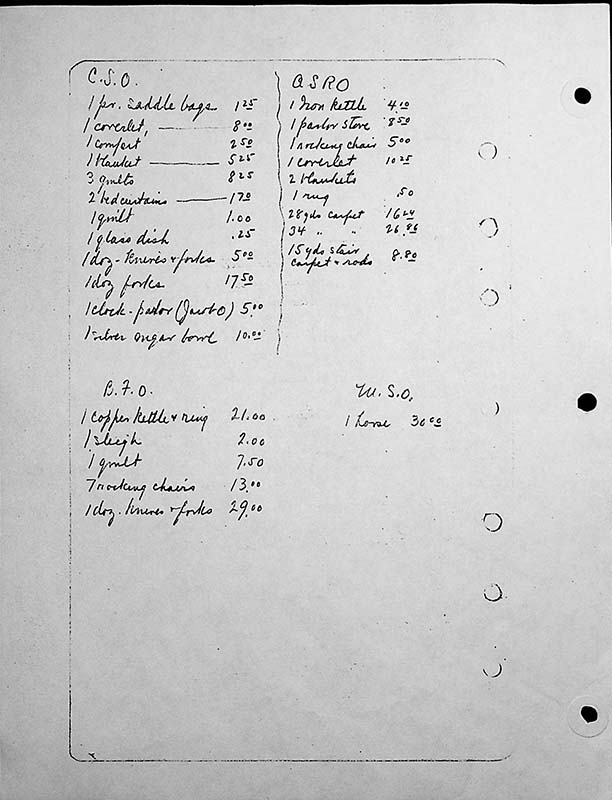 C.S.O.
1 pr. saddle bags 1 25
1 coverlet, 8 00
1 comfort 2 50
1 blanket 5 25
3 quilts 8 25
2 bed curtains 1 70
1 quilt 1.00
1 glass dish .25
1 doz - knives + forks 5 00
1 doz forks 17 50
1 clock - parlor (Jacob O) 5.00
1 silver sugar bowl 10.00
A S R O
1 Iron kettle 4.10
1 parlor stove 8 50
1 rocking chair 5 00
1 coverlet 10 25
2 blankets
1 rug .50
28 yds carpet 16 24
34 " " 26.86
15 yds stair
carpet + rods 8.80
B.F.O.
1 copper kettle + ring 21.00
1 sleigh 2.00
1 quilt 7.50
7 rocking chairs 13.00
1 doz. knives + forks 29.00
M.S.O.
1 horse 30 00